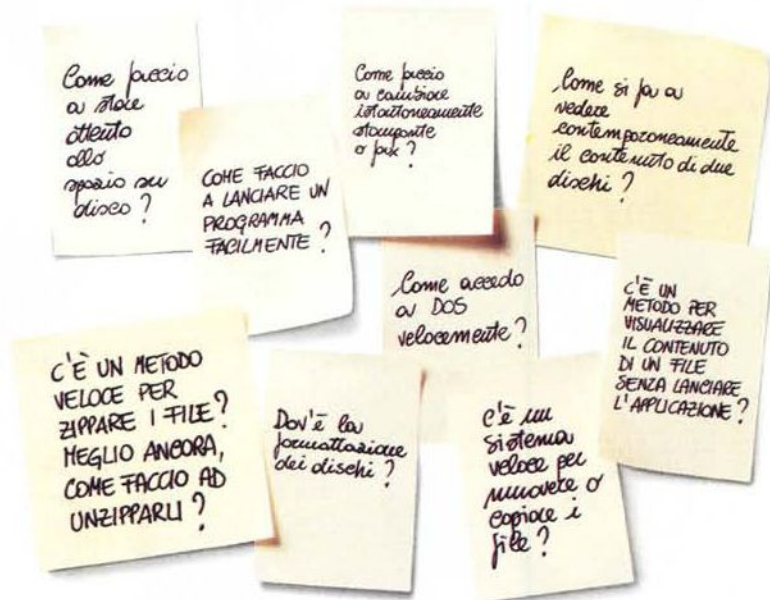 Come faccio
a stare
attento
allo
spazio su
disco?
COME FACCIO
A LANCIARE UN
PROGRAMMA
FACILMENTE?
Come faccio
a cambiare
istantaneamente
stampante
o fax?
Come si fa a
vedere
contemporaneamente
il contenuto di due
dischi?
Come accedo
a DOS
velocemente?
C'È UN
METODO PER
VISUALIZZARE
IL CONTENUTO
DI UN FILE
SENZA LANCIARE
L'APPLICAZIONE?
C'È UN METODO
VELOCE PER
ZIPPARE I FILE?
MEGLIO ANCORA,
COME FACCIO AD
UNZIPPARLI?
Dov'è la
formattazione
dei dischi?
C'è un
sistema
veloce per
muovere o
copiare i
file?